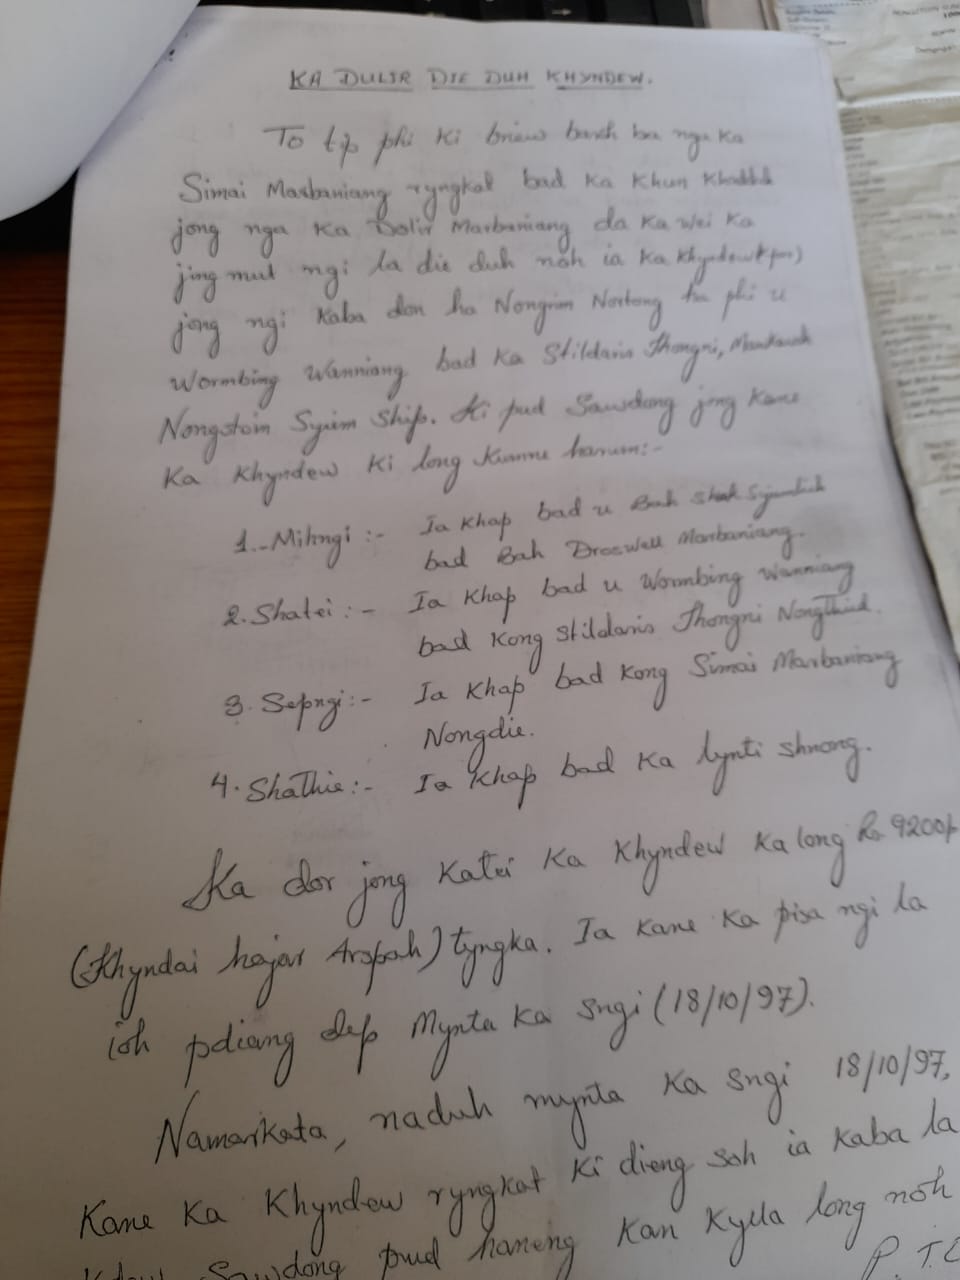 KA DULIR DIE DUH KHYNDEW.
To tip phi ki briew baroh ba nga ka
Simai Marbaniang ryngkat bad ka Khun Khadduh
jong nga Ka Dolir Marbaniang da ka wei ka
jing mut ngi la die duh noh ia ka Khyndew
jong ngi Kaba don ha Nongrim Nortong ha phi u
Wormbing Wanniang bad Ka Stildaris Thongni,
Nongstoin Syiem Ship. Ki pud Sawdong jong Kane
Ka Khyndew Ki long Kumne harum:-
1. Mihngi :- Ia Khap bad u Bah
bad Bah Droswell Marbaniang.
2. Shatei :- Ia Khap bad u Wormbing Wanniang
bad Kong Stildaris Thongni Nongthied.
3. Sepngi:- Ia Khap bad Kong Simai Marbaniang
Nongdie.
4. Shathie:- Ia Khap bad Ka lynti shnong.
Ka dor jong Katei Ka Khyndew Ka long Rs 9200/-
(Khyndai hajar Arspah) tyngka. Ia Kane Ka pisa ngi la
ioh pdiang dep Mynta Ka Sngi (18/10/97).
Namarkata, naduh mynta Ka Sngi 18/10/97,
Kane Ka Khyndew ryngkat Ki dieng soh ia Kaba la
Sawdong pud haneng Kan Kylla long noh
P.T.O